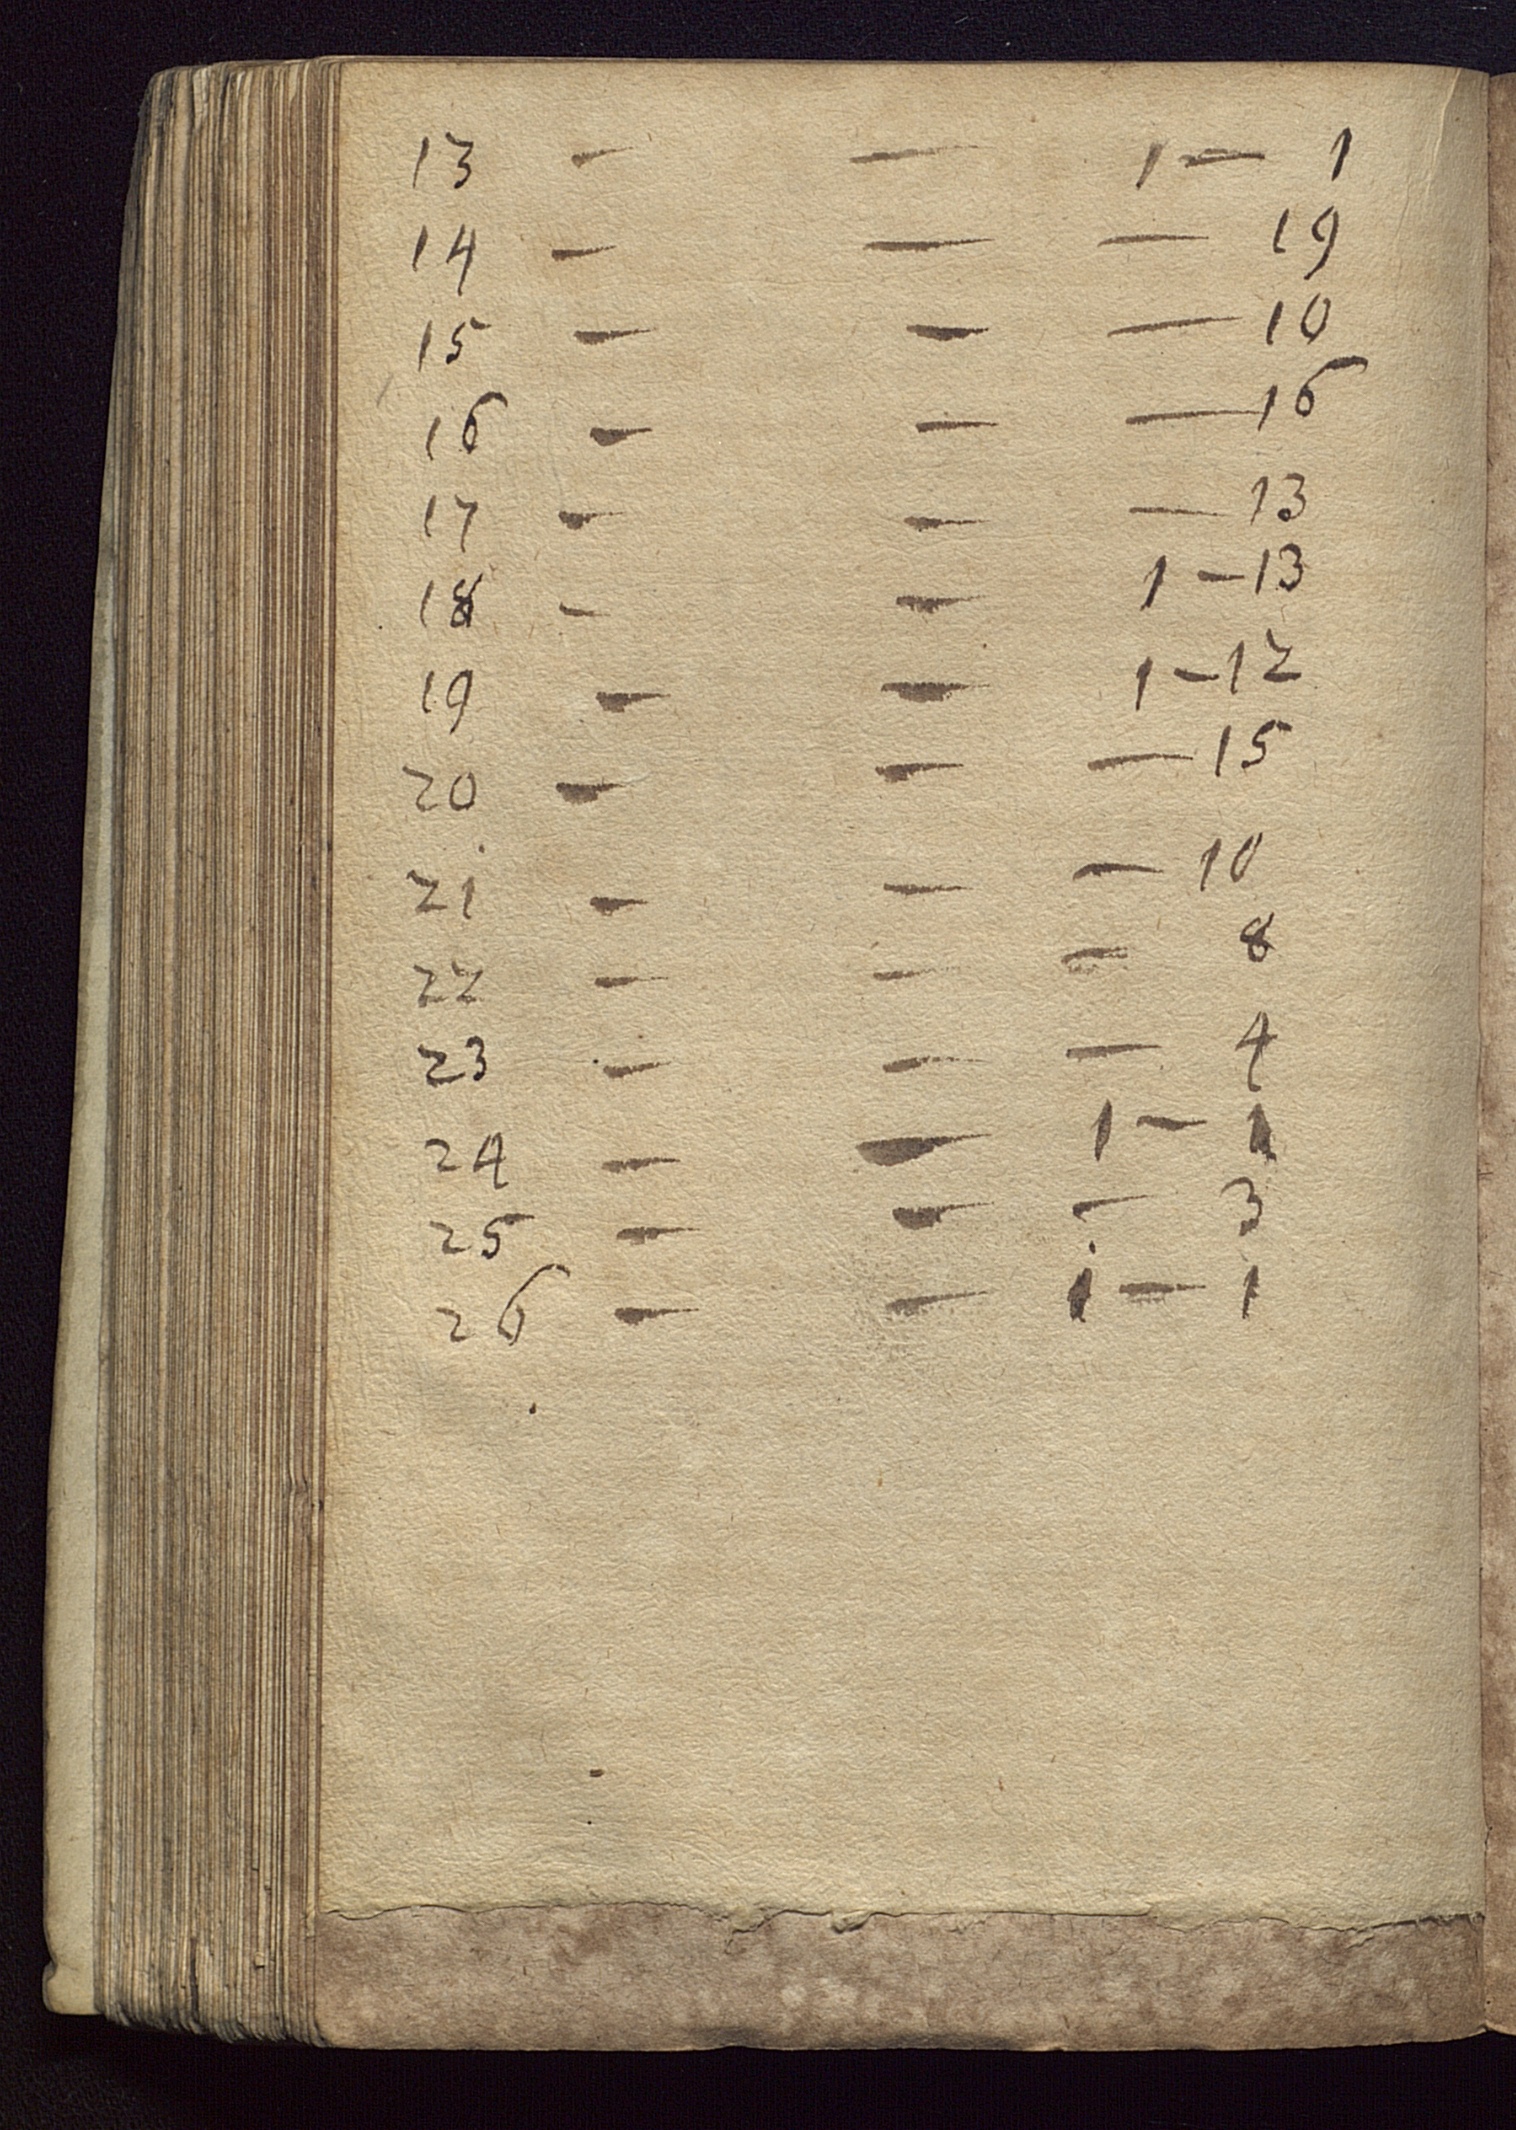 13 — — 1 — 1
14 — — — 19
15 — — — 10
16 — — — 16
17 — — — 13
18 — — 1 — 13
19 — — 1 — 12
20 — — — 15
21 — — — 10
22 — — — 8
23 — — — 4
24 — — 1 — 1
25 — — — 3
26 — — 1 — 1